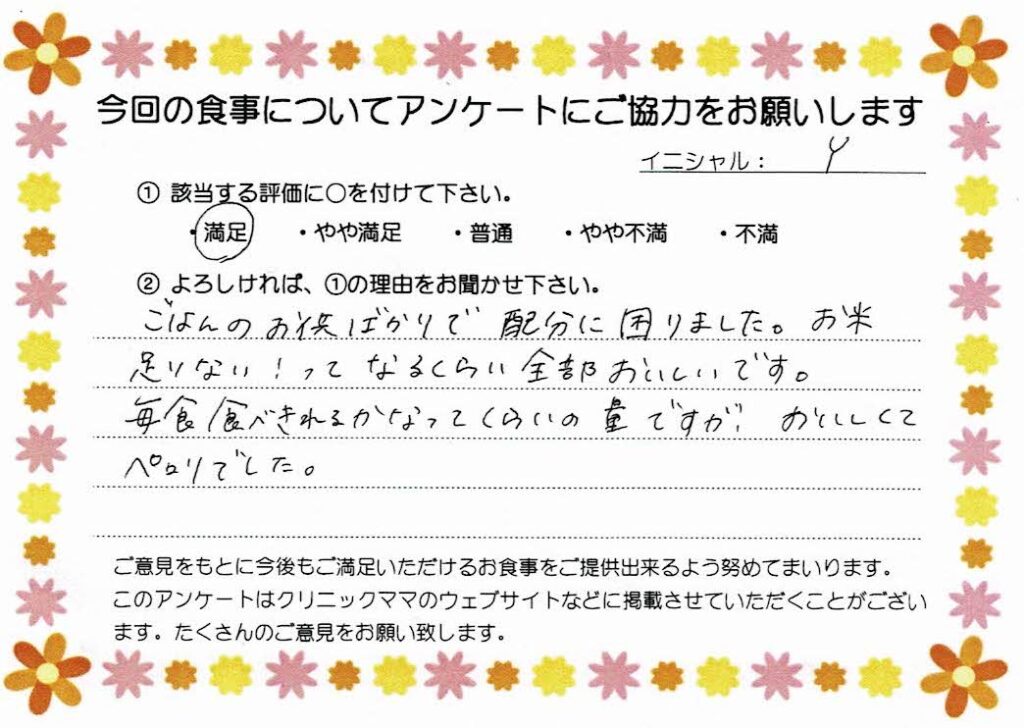 今回の食事についてアンケートにご協力をお願いします
イニシャル： Y
① 該当する評価に○を付けて下さい。
・満足 ・やや満足 ・普通 ・やや不満 ・不満
② よろしければ、①の理由をお聞かせ下さい。
ごはんのお供ばかりで 配分に困りました。お米
足りない！って なるくらい全部おいしいです。
毎食食べきれるかなってくらいの量ですが、おいしくて
ペロリでした。
ご意見をもとに今後もご満足いただけるお食事をご提供出来るよう努めてまいります。
このアンケートはクリニックママのウェブサイトなどに掲載させていただくことがござい
ます。たくさんのご意見をお願い致します。